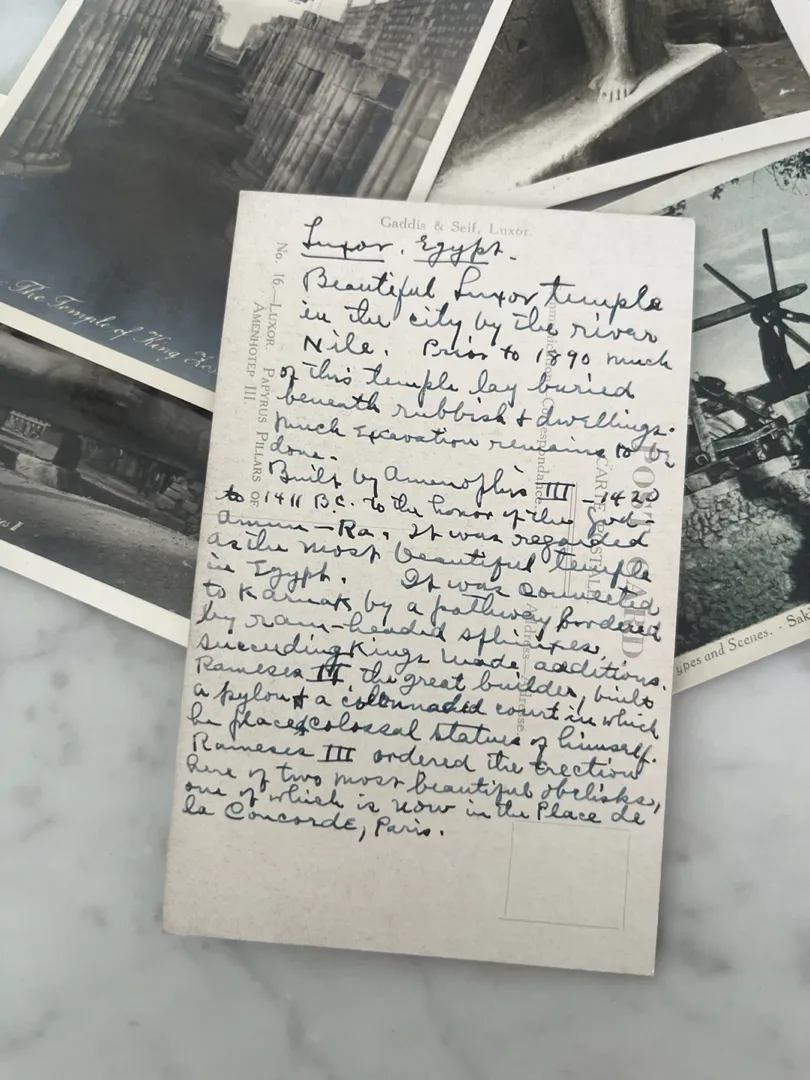 Gaddis & Seif, Luxor.
No. 16.—LUXOR. PAPYRUS PILLARS OF
AMENHOTEP III.
Luxor, Egypt.
Beautiful Luxor temple
in the city by the river
Nile. Prior to 1890 much
of this temple lay buried
beneath rubbish & dwellings.
Much excavation remains to be
done.
Built by Amenophis III - 1420
to 1411 B.C. to the honor of the god -
Amun-Ra. It was regarded
as the most beautiful temple
in Egypt. It was connected
to Karnak by a pathway bordered
by ram-headed sphinxes.
Succeeding Kings made additions.
Rameses II the great builder, built
a pylon & a colonnaded court in which
he placed colossal statues of himself.
Rameses III ordered the erection
here of two most beautiful obelisks,
one of which is now in the Place de
la Concorde, Paris.
POST CARD
CARTE POSTALE
Correspondance.
Address — Adresse.
The Temple of King
ypes and Scenes. - Sak